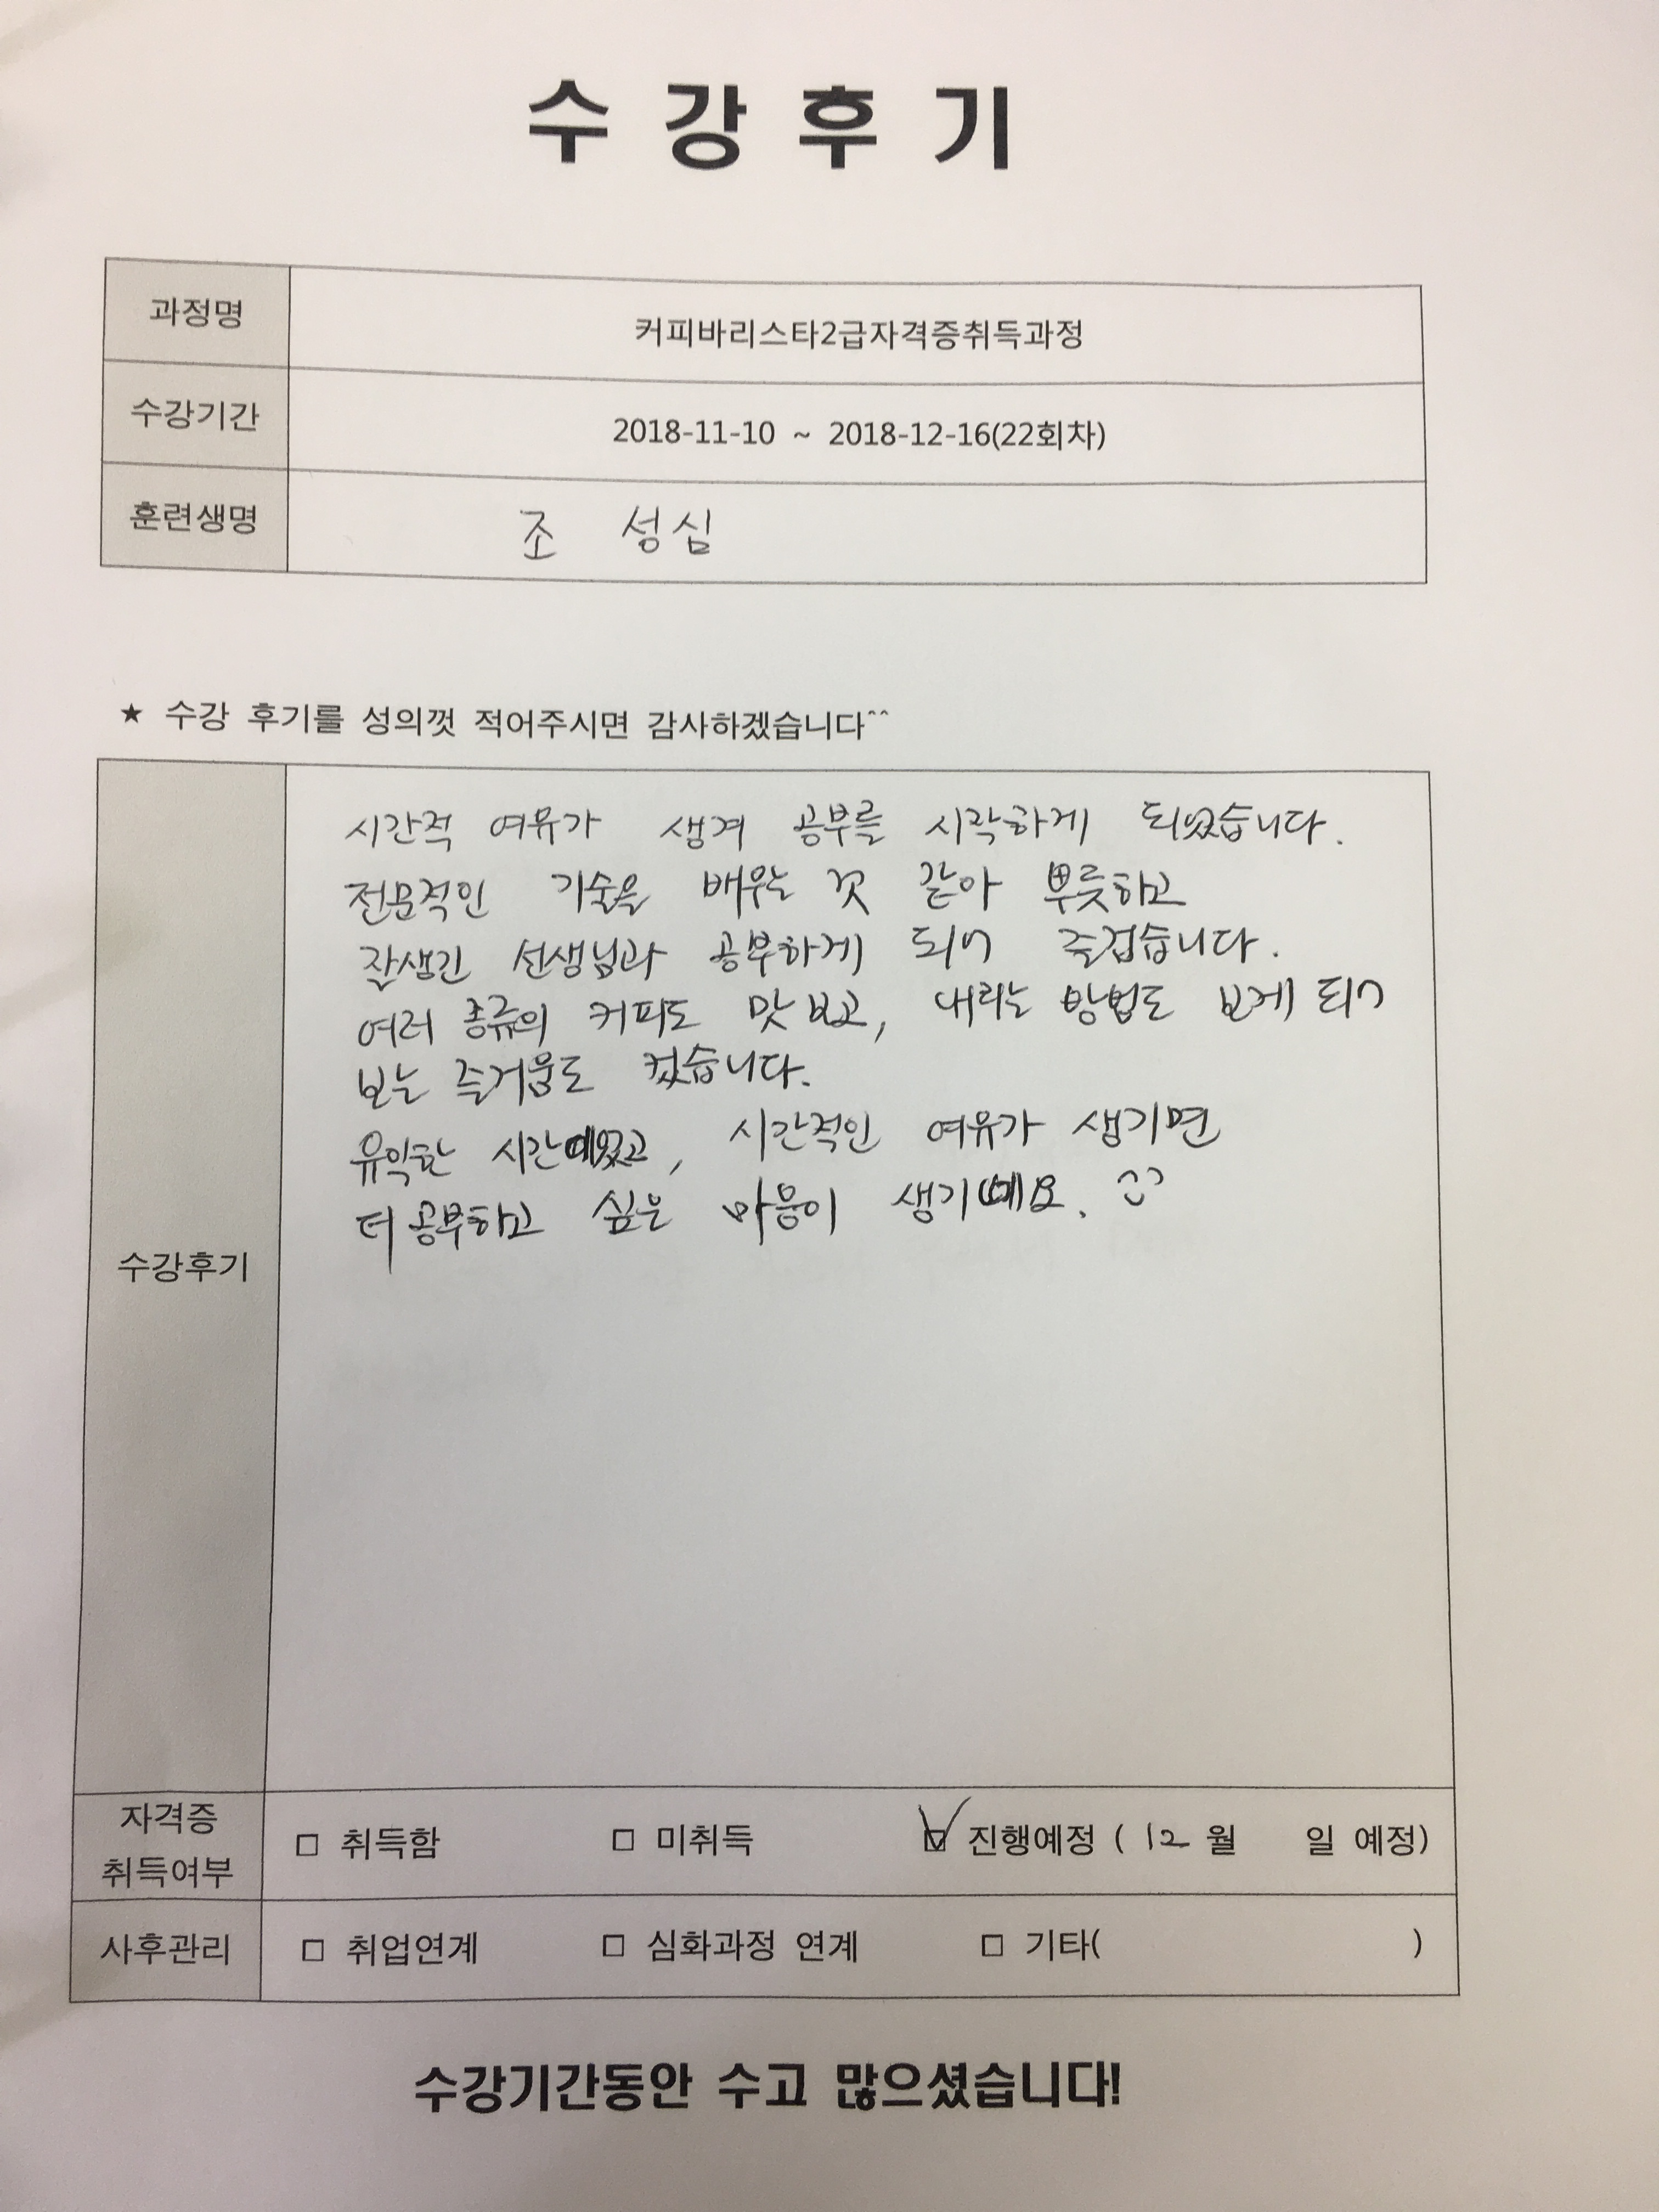 수 강 후 기
과정명 커피바리스타2급자격증취득과정
수강기간 2018-11-10 ~ 2018-12-16(22회차)
훈련생명 조 성심
★ 수강 후기를 성의껏 적어주시면 감사하겠습니다^^
시간적 여유가 생겨 공부를 시작하게 되었습니다.
전문적인 기술을 배우는 것 같아 뿌듯하고
잘생긴 선생님과 공부하게 되어 즐겁습니다.
여러 종류의 커피도 맛 보고, 내리는 방법도 보게 되어
보는 즐거움도 컸습니다.
유익한 시간이었고, 시간적인 여유가 생기면
더 공부하고 싶은 마음이
수강후기
자격증
취득여부 □ 취득함 □ 미취득 ☑ 진행예정 ( 12 월 일 예정)
사후관리 □ 취업연계 □ 심화과정 연계 □ 기타( )
수강기간동안 수고 많으셨습니다!